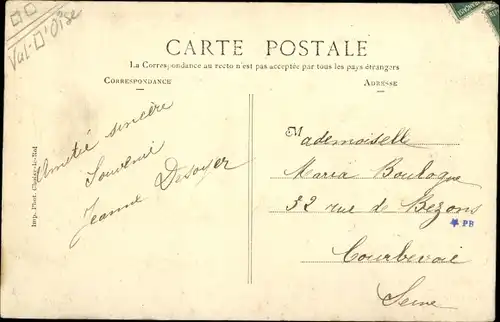 Val-D'Oise
CARTE POSTALE
La Correspondance au recto n'est pas acceptée par tous les pays étrangers
CORRESPONDANCE
ADRESSE
Amitié sincère
Souvenir
Jeanne Desoyer
Mademoiselle
Maria Boulogne
52 rue de Bezons
PB
Courbevoie
Seine
Imp. Phot.